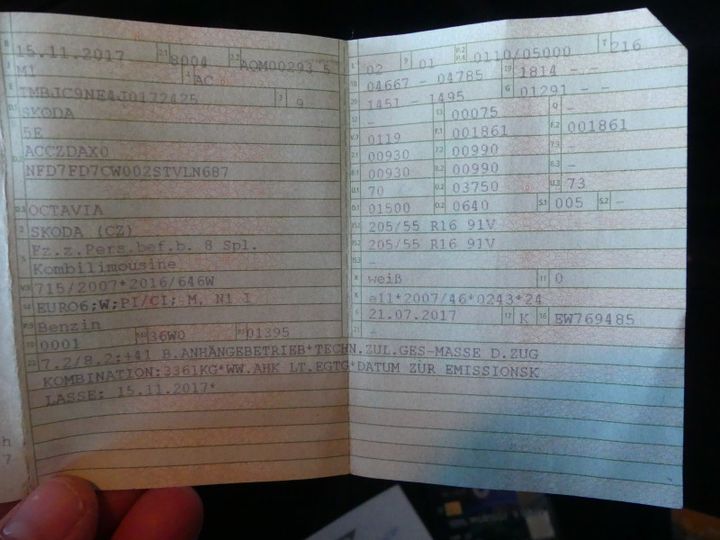 B 15.11.2017 2.1 8004 2.2 AQM00293 5
J M1 4 AC
E TMBJC9NE4J0172425 3 9
D.1 SKODA
5E
D.2 ACCZDAX0
NFD7FD7CW002STVLN687
D.3 OCTAVIA
2 SKODA (CZ)
5 Fz.z.Pers.bef.b. 8 Spl.
Kombilimousine
V.9 715/2007*2016/646W
14 EURO6;W;PI/CI; M, N1 I
P.3 Benzin
10 0001 14.1 36W0 P.1 01395
22 7.2/8.2:+41 B.ANHÄNGEBETRIEB*TECHN.ZUL.GES-MASSE D.ZUG
KOMBINATION:3361KG*WW.AHK LT.EGTG*DATUM ZUR EMISSIONSK
LASSE: 15.11.2017*
L 02 9 01 P.2 P.4 0110/05000 T 216
18 04667 - 04785 19 1814 - -
20 1451 - 1495 G 01291 - -
12 - 13 00075 Q -
V.7 0119 F.1 001861 F.2 001861
7.1 00930 7.2 00990 7.3 -
8.1 00930 8.2 00990 8.3 -
U.1 70 U.2 03750 U.3 73
O.1 01500 O.2 0640 S.1 005 S.2 -
15.1 205/55 R16 91V
15.2 205/55 R16 91V
15.3 -
R weiß 11 0
K e11*2007/46*0243*24
6 21.07.2017 17 K 16 EW769485
21 -